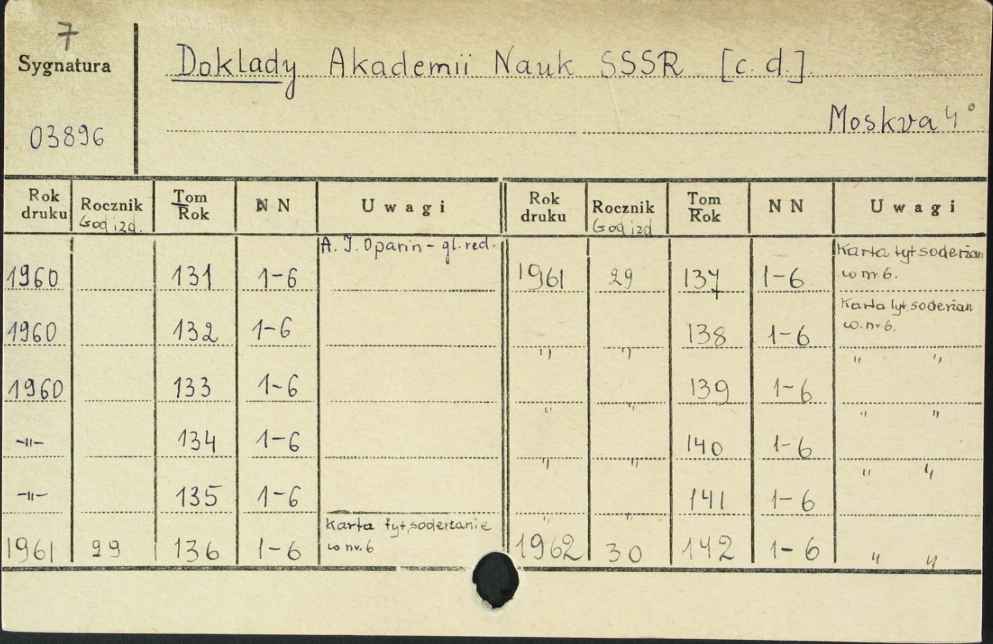 7
Sygnatura
03896
Doklady Akademii Nauk SSSR [c. d.]
Moskva 4°
Rok druku Rocznik God izd. Tom Rok NN Uwagi Rok druku Rocznik God izd Tom Rok NN Uwagi
A. I. Oparin - gl. red.
1960 131 1-6
1961 29 137 1-6 Karta tyt soderžan
w nr 6.
1960 132 1-6
" " 138 1-6 Karta tyt, soderžan
w. nr 6. " "
1960 133 1-6
" " 139 1-6 " "
-"- 134 1-6
" " 140 1-6 " "
-"- 135 1-6
" " 141 1-6
1961 29 136 1-6 Karta tyt, soderžanie
w nr. 6
1962 30 142 1-6 " "